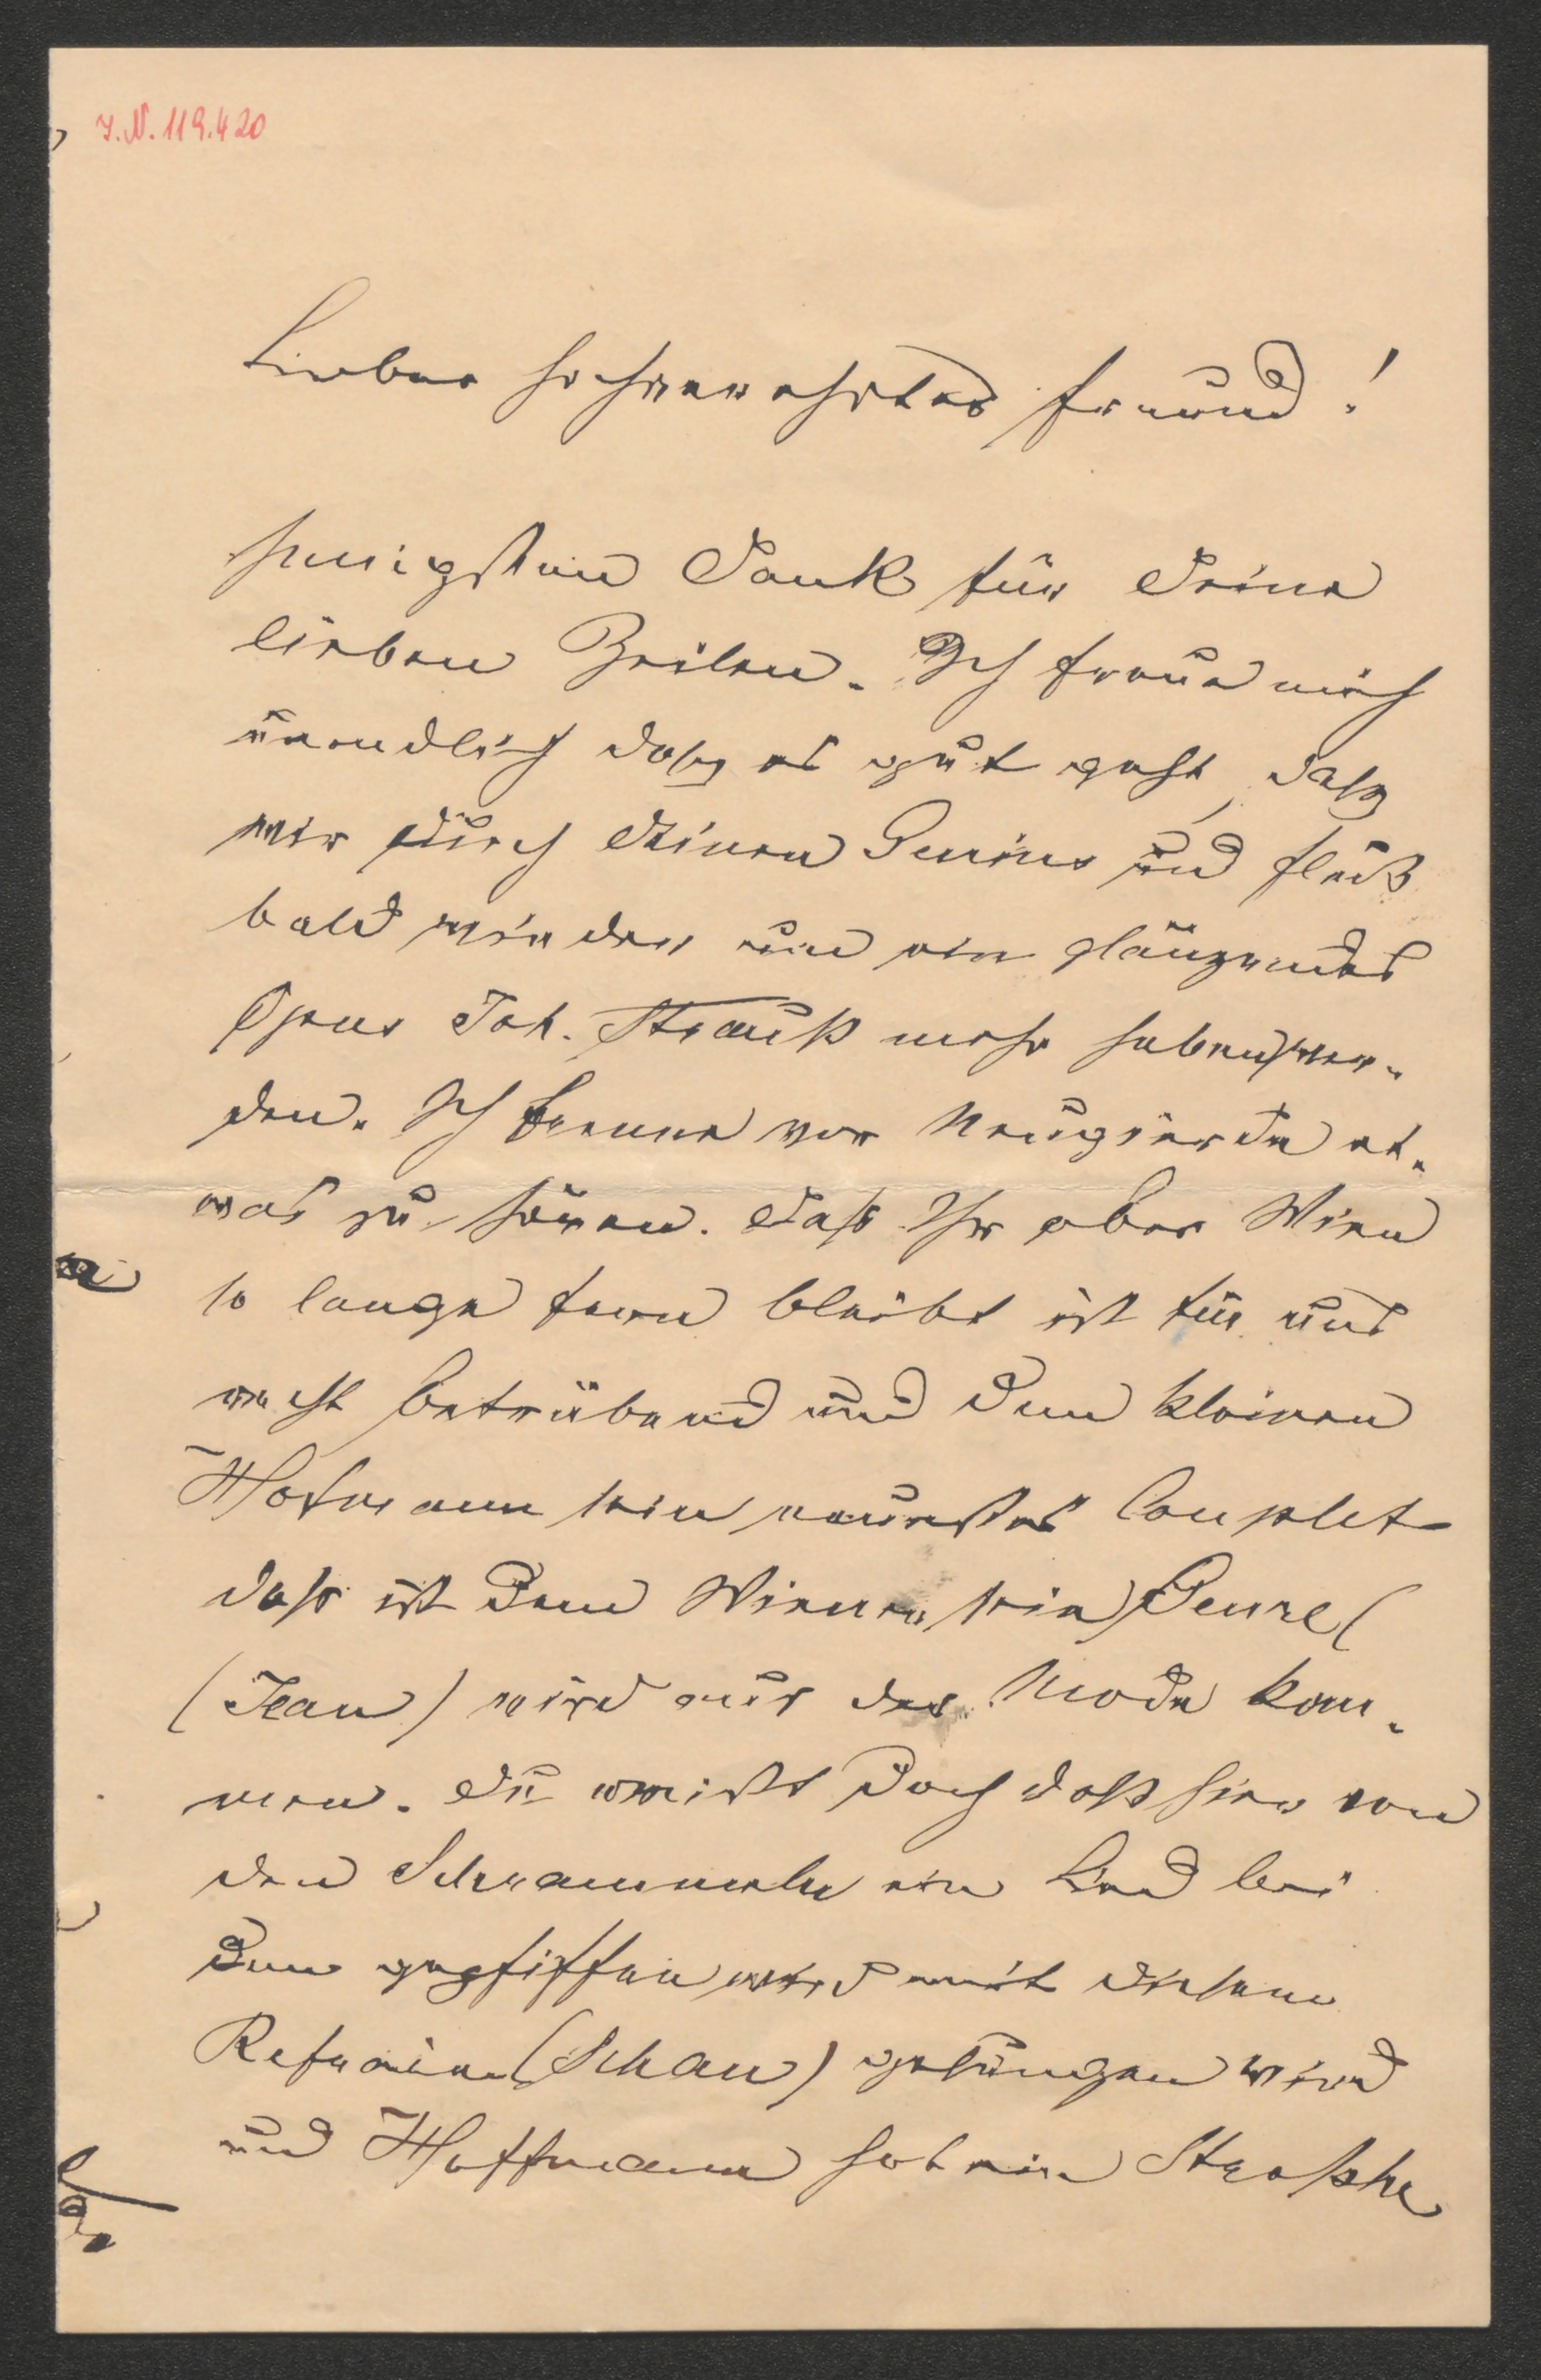 J.N. 119.420
Lieber hochverehrter Freund!
Innigsten Dank für Deine
lieben Zeilen. Ich freue mich
unendlich daß es gut geht, daß
wir durch Deinen Genius und Fleiß
bald wieder um ein glänzendes
Opus Joh. Strauß mehr haben wer-
den. Ich brenne vor Neugierde et-
was zu hören. Daß Ihr aber Wien
so lange fern bleibt ist für uns
recht betrübend und dem kleinen
Hofmann sein neuestes Couplet
daß ist dem Wiener sein Genre (
(Jean) wird aus der Mode kom-
men. Du weißt doch daß hier von
den Schrammeln ein Lied bei
dem gepfiffen wird mit diesem
Refrain (Schan) gesungen wird
und Hoffmann hat eine Strophe